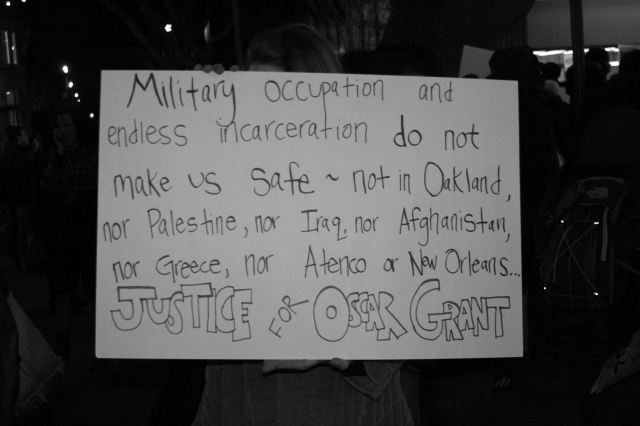 Military occupation and
endless incarceration do not
make us safe ~ not in Oakland,
nor Palestine, nor Iraq, nor Afghanistan,
nor Greece, nor Atenco or New Orleans...
JUSTICE FOR OSCAR GRANT